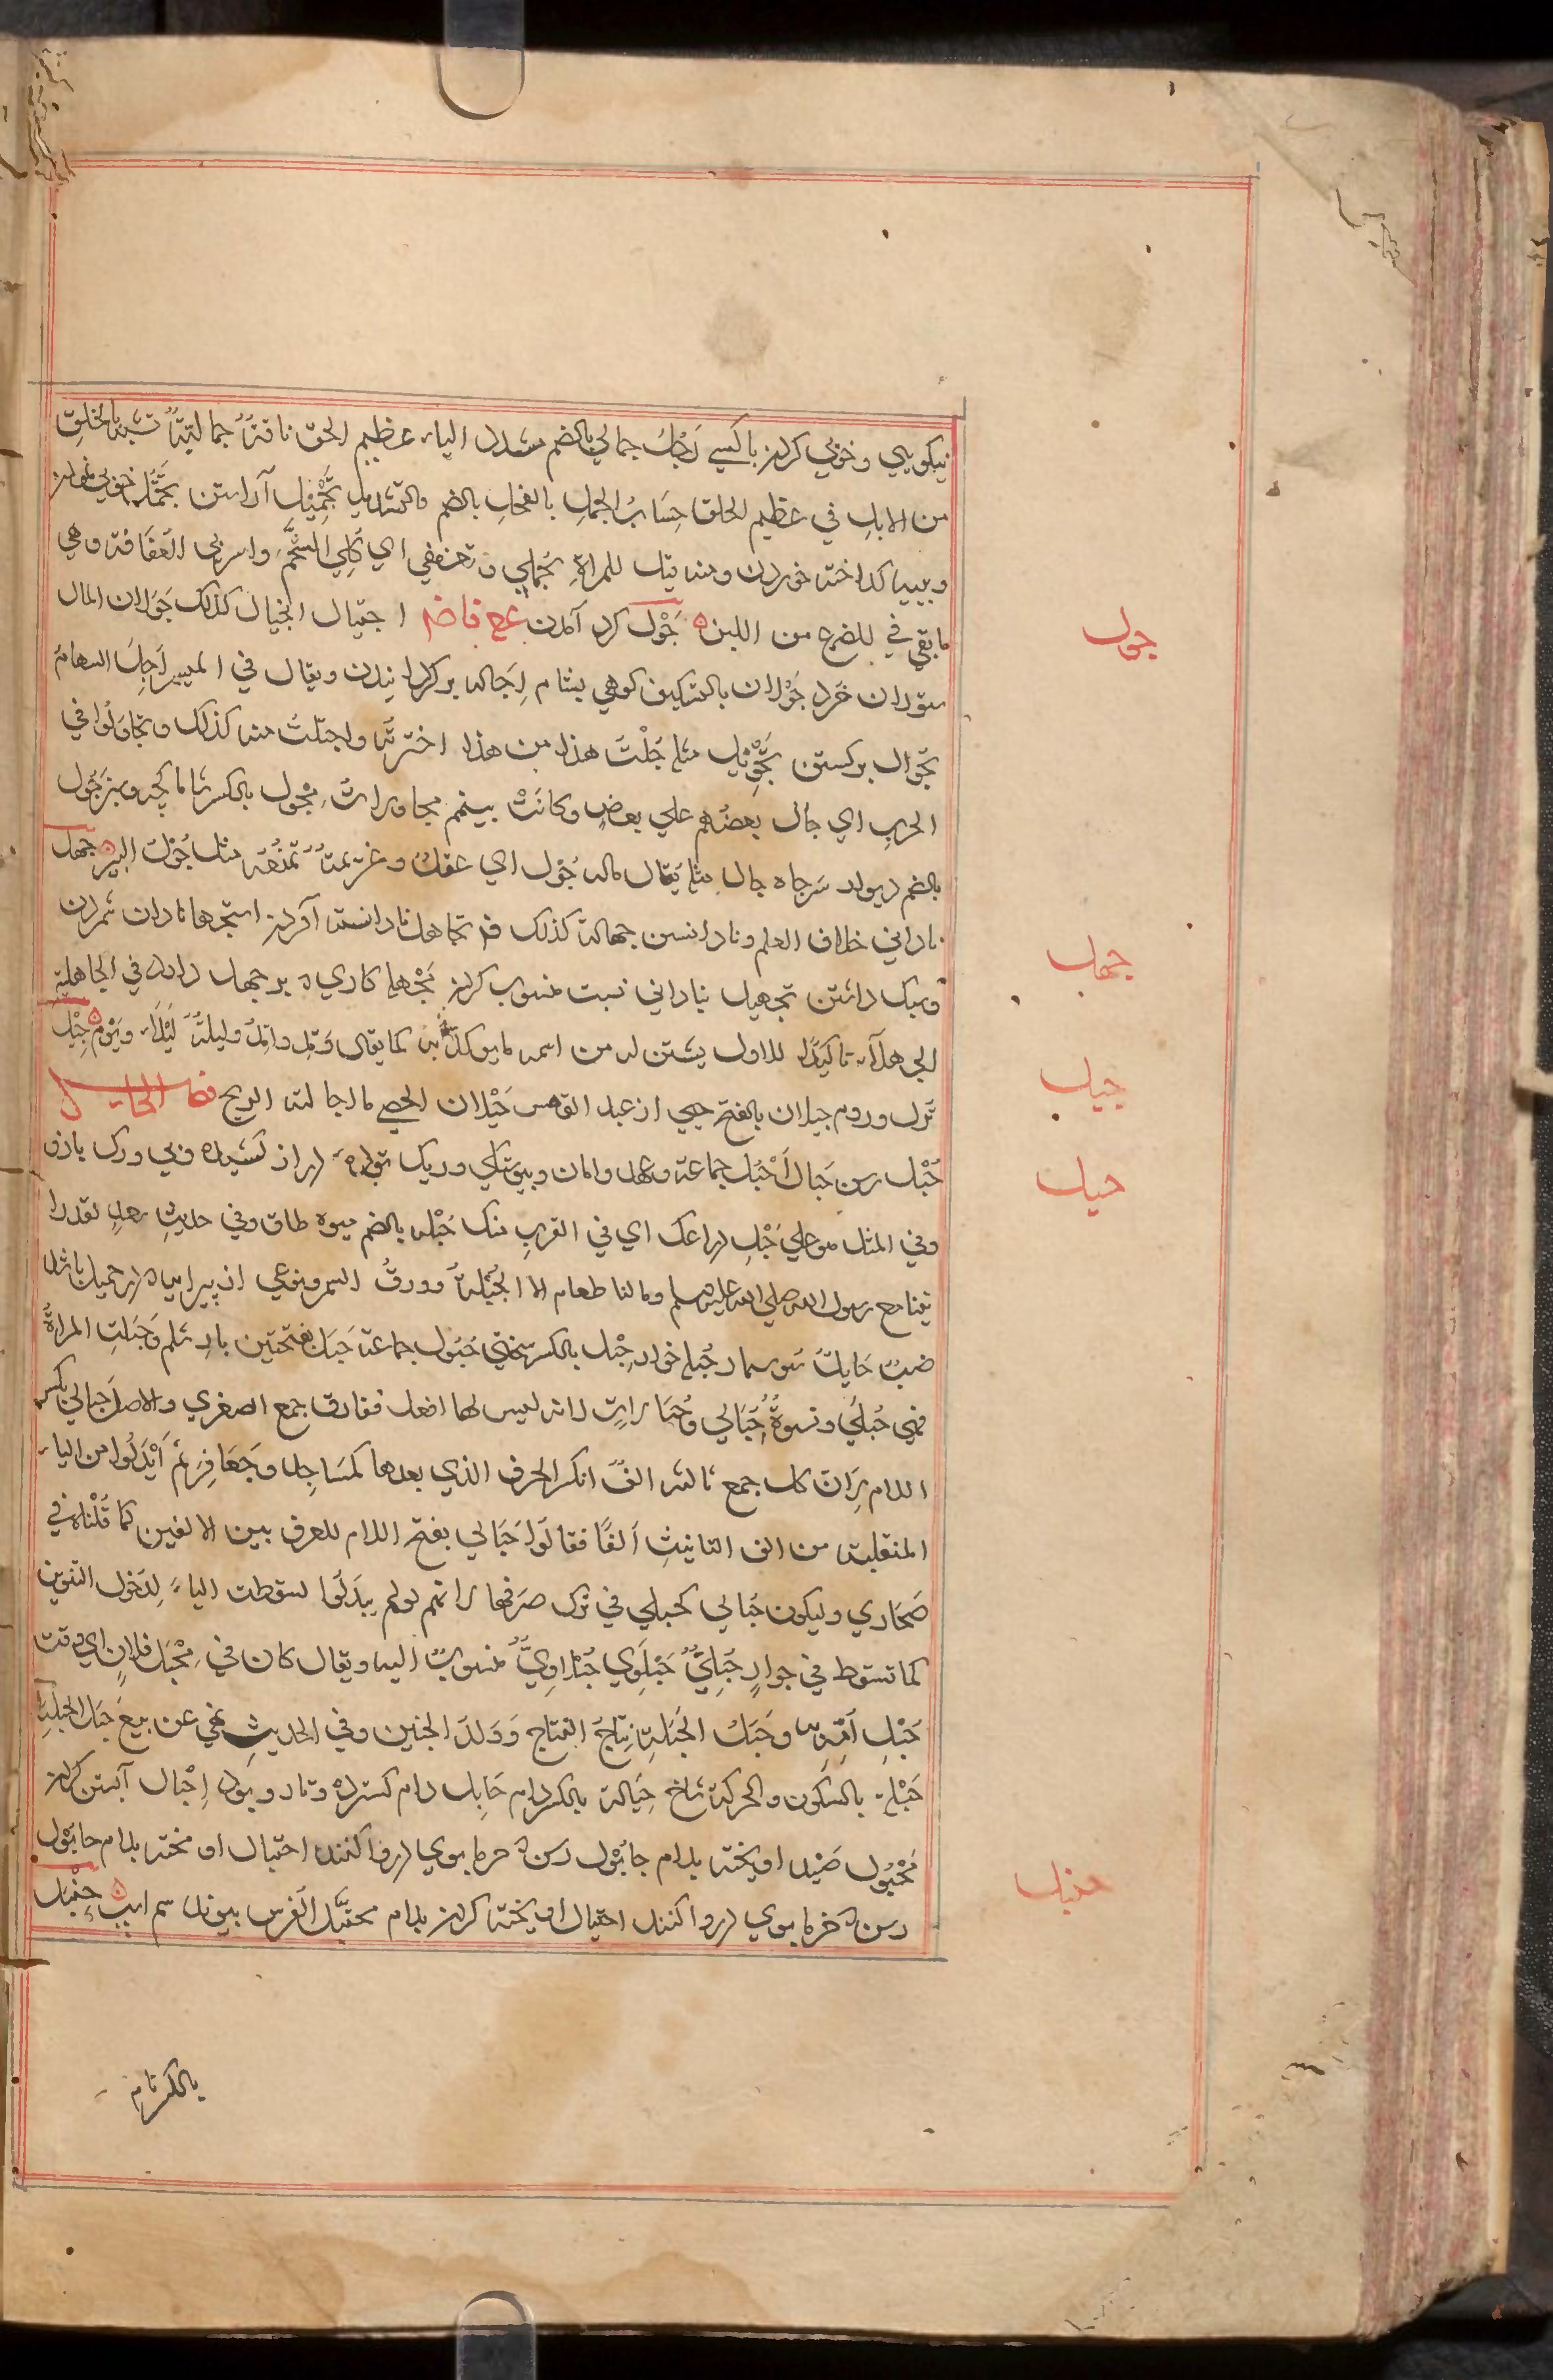 نیکویي و خوبي کردن باکسي رَجُلُ جمالي بالضم مشدد الیاء عظیم الخلق ناقةٌ جمالیةٌ تشبه بالخلق
من الابل في عظیم الخلق حِسَابُ الجُمل بالفحل بالضم والتشدید تَجْمِیْل آراستن تجمُّل خوبي نمودن
و پیه کداخته خوردن ومنه قیل للمراة تجملي و تعففي اي کلي الشحمَ واشربي العُفَافة وهي
ما بقي في الضرع من اللبن ه جَوْل کرد آمدن ع فا ض اجتیال انجیال کذلك جَوَلان المال
ستوران خرد جَوْلان بالتسکین کوهي بشام اِجَالة بر کردانیدن ویقال في المیسر اَجِلِ السهامَ
تجوال برکشتن تَجْوِیْل مثله جُلْتَ هذا من هذا اخترتَه واجتلتُ منه کذلك وتجاولوا في
الحرب اي جال بعضُهم علي بعض وکانَتْ بینهم مجاولات مِجْول بالکسر شاماکچه وسپر جُول
بالضم دیوار سَرجاه جال مثله یقال ماله جُوْل اي عقلُ و عزیمةٌ تمنُعه مثل جُوْل البیر ه جَهْل
ناداني خلاف العلم ونادانستن جهالة کذلك ف تجاهل نادانسته آوردن استجهال نادان شمردن
وسبك داشتن تجهیل بناداني نسبت منسوب کردن مَجْهل کاري که بر جهل دارد في الجاهلیة
الجهلاَء تاکیدٌ للاول یشتق له من اسمه ما یوکد به کما یقال وَتِدٌ واتِدٌ ولیلةٌ لَیْلَاء ویَوْم ه جِیْل
تُرك و روم جیلان بالفتح حیي از عبد القیس جَیْلان الحصي ما اجالته الریح فصل الحاء
حَبْل رسن حِبال اَحْبُل جماعة وعهد وامان وپیوستکي و ریك توده دراز کشیده وپي و رک بازو
وفي المثل هو علي حَبْلِ ذراعك اي في القربِ منك حُبْله بالضم میوه طاق وفي حدیث سعدٍ لقد را
یتنا مع رسول الله صلي الله علیه وسلم وما لنا طعام الا الحُبْلَة وورقُ السمر ونوعي از پیرایه
ضبٌ حَابِلٌ سوسمار حُبله خوار حِبْل بالکسر سختي حُبُول جماعة حَبَل بفتحتین بار شکم وحَبَلتِ المراةُ
فهي حُبلَي ونسوةٌ حَبَالي وحُبَالیات لانه لیس لها افعل ففارق جمع الصغري والاصل حبالي بکسر
اللام لِاَن کل جمع ثالثه الفٌ انکسر الحرف الذي بعدها کمَسَاجِد وجَعَافِر ثم اَبْدَلُوا من الیاء
المنقلبة من الف التانیثِ اَلفًا فقالوا حَبَالي بفتح اللام للفرق بین الالفین کما قُلْناه في
صَحَاري ولیکون حَبَالي کحبلي في ترك صَرْفها لانهم لو لم یبدَلوا لسقطت الیاءُ لِدَخول التنوین
کما تسقط في جوارٍ حُبْلِيٌّ حُبْلَوِي حُبْلاوِيٌّ منسوبٌ الیه ویقال کان في مَحْبَل فلانٍ اي وقت
حَبْلِ اُمِّهِ به وحَبَلُ الحَبَلةِ نِتاجُ النتاج وَوَلَدُ الجنین وفي الحدیثِ نهي عن بَیْع حَبَل الحَبَلَةِ
حَبْلة بالسکون والحرکة شاخ حِبَالة بالکسر دام حَابِل دام کسترنده وتار و پود اِحْبَال آبستن کردن
مَحْبُول صَید آویخته بدام حابُوْل رسن که خرما بوي درو اکنند احتبال آویخته بدام حابُوْل
رسن که خرما بوي درو اکنند احتبال آویخته کردن بدام محتبَل الفرس پیوند سم اسپ ه حنبل
جول
جهل
جیل
حبل
حنبل
بالکسر نام